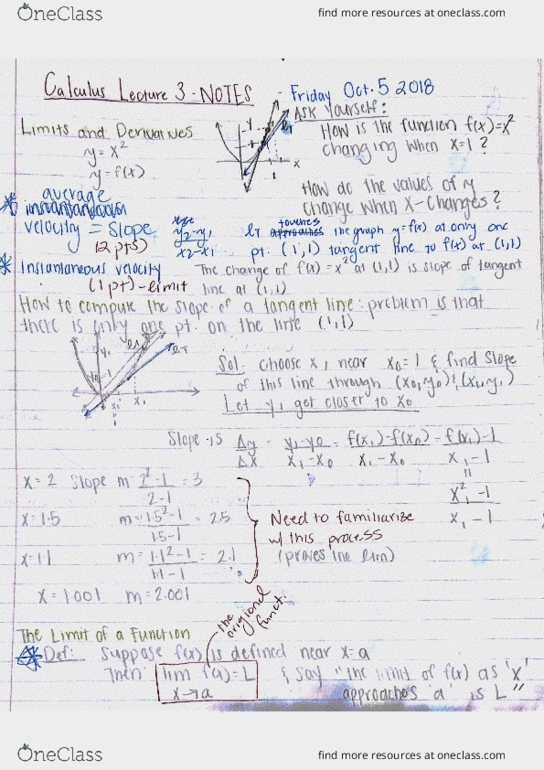 OneClass
find more resources at oneclass.com
Calculus Lecture 3 - NOTES
Friday Oct. 5 2018
Ask Yourself:
Limits and Derivatives
How is the function f(x)=x²
changing when x=1?
y = x²
y = f(x)
How do the values of y
change when x-changes?
average
instantaneous
velocity = slope
(2 pts)
y2-y1
x2-x1
lT touches
approaches the graph y=f(x) at only one
pt: (1,1) tangent line to f(x) at (1,1)
Instantaneous velocity
(1 pt) - limit
The change of f(x)=x² at (1,1) is slope of tangent
line at (1,1)
How to compute the slope of a tangent line: problem is that
there is only one pt. on the line (1,1)
Sol: choose x, near x0=1 & find slope
of this line through (x0,y0) & (x1,y1)
Let y1 get closer to x0
Slope is Δy/Δx = y1-y0/x1-x0 = f(x1)-f(x0)/x1-x0 = f(x1)-1/x1-1
=
x1²-1
x1-1
x=2 Slope m 2²-1/2-1 = 3
x=1.5 m=1.5²-1/1.5-1 = 2.5
x=1.1 m=1.1²-1/1.1-1 = 2.1
x=1.001 m=2.001
Need to familiarize
w/ this process
(proves the lim)
the origional funct.
The Limit of a Function
Def: Suppose f(x) is defined near x=a
Then lim f(x)=L & say "the limit of f(x) as 'x'
x→a approaches 'a' is L"
OneClass
find more resources at oneclass.com